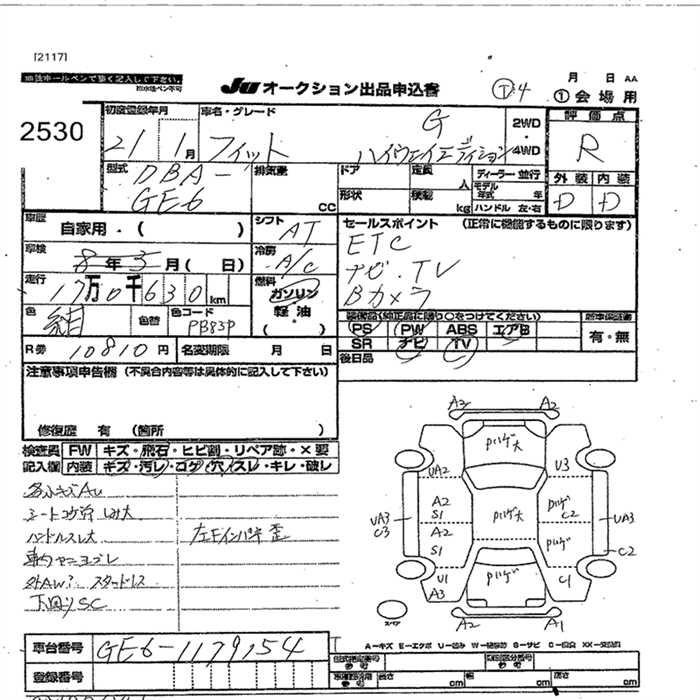 [2117]
※必ずボールペンで強く記入して下さい。
JU オークション出品申込書
月 日 AA
① 会場用
T 4
2530
初度登録年月
21 1月
車名・グレード
フィット
G
ハイウェイエディション
2WD
4WD
評価点
R
型式
DBA-
GE6
排気量
cc
ドア
定員
人
形状
積載
kg
ディーラー・並行
モデル
年式 年
ハンドル 左・右
外装 内装
D D
車歴
自家用・( )
シフト
AT
セールスポイント (正常に機能するものに限ります)
ETC
ナビ・TV
Bカメラ
車検
8年3月( 日)
冷房
A/C
走行
17万0千630km
燃料
ガソリン
軽・油
( )
色
紺
色替
色コード
PB83P
装備品(純正品に限り〇をつけてください)
PS PW ABS エアB
SR ナビ TV
新車保証書
有・無
後日品
R券 10810円
名変期限 月 日
注意事項申告欄 (不具合内容等は具体的に記入して下さい)
修復歴 有 (箇所 )
検査員
記入欄
FW キズ・飛石・ヒビ割・リペア跡・×要
内装 キズ・汚レ・コゲ・穴・スレ・キレ・破レ
シートコゲ穴 シミ大
ハンドルスレ大
左Fインパネ歪
外AW スタッドレス
下回りSC
A2 A2
Pハゲ大
UA2 U3
A2
S1
Pハゲ大
Pハゲ
C2
UA3
C3
UA3
C2
A2
S1
Pハゲ
U1
A3
Pハゲ
C1
A2 A1
スペア
A-キズ E-エクボ U-凹み W-補修跡 S-サビ C-腐食 XX-交換済
車台番号
GE6-1179154
登録番号
型式指定番号
参考
類別区分番号
参考
長さ cm 幅 cm 高さ cm